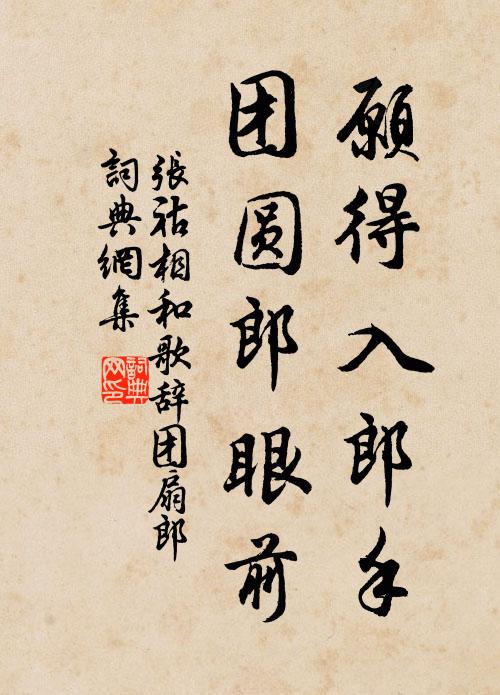 願得入郎手
团圆郎眼前
張祜相和歌辞团扇郎
詞典網集
詞典
网印